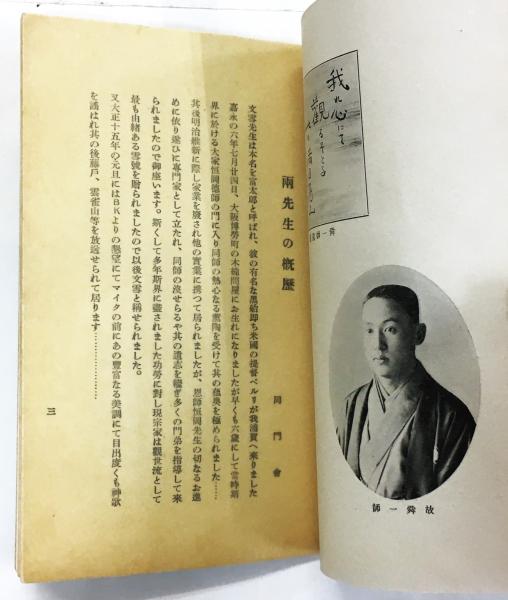 兩先生の槪歷
同門會
文雪先生は本名を富太郎と呼ばれ、彼の有名な黑船卽ち米國の提督ペルリが我浦賀へ來りました
嘉永の六年七月廿四日、大阪博勞町の木綿問屋にお生れになりましたが早くも六歲にして當時謠
界に於ける大家恒岡德師の門に入り同師の熱心なる薰陶を受けて其の蘊奥を極められました……
其後明治維新に際し家業を廢され他の實業に携つて居られましたが、恩師恒岡先生の切なるお進
めに依り遂ひに專門家として立たれ、同師の沒せらるや其の遺志を繼ぎ多くの門弟を指導して來
られましたので御座います。斯くして多年斯界に盡されました功勞に對し現宗家は觀世流として
最も由緖ある雪號を贈られましたので以後文雪と稱せられました。
又大正十五年の元旦にはBKよりの懇望にてマイクの前にあの豐富なる美調にて目出度くも神歌
を謠はれ其の後藤戶、雲雀山等を放送せられて居ります……………………
三
我れ心にて
觀る
舜一師
故舜一師